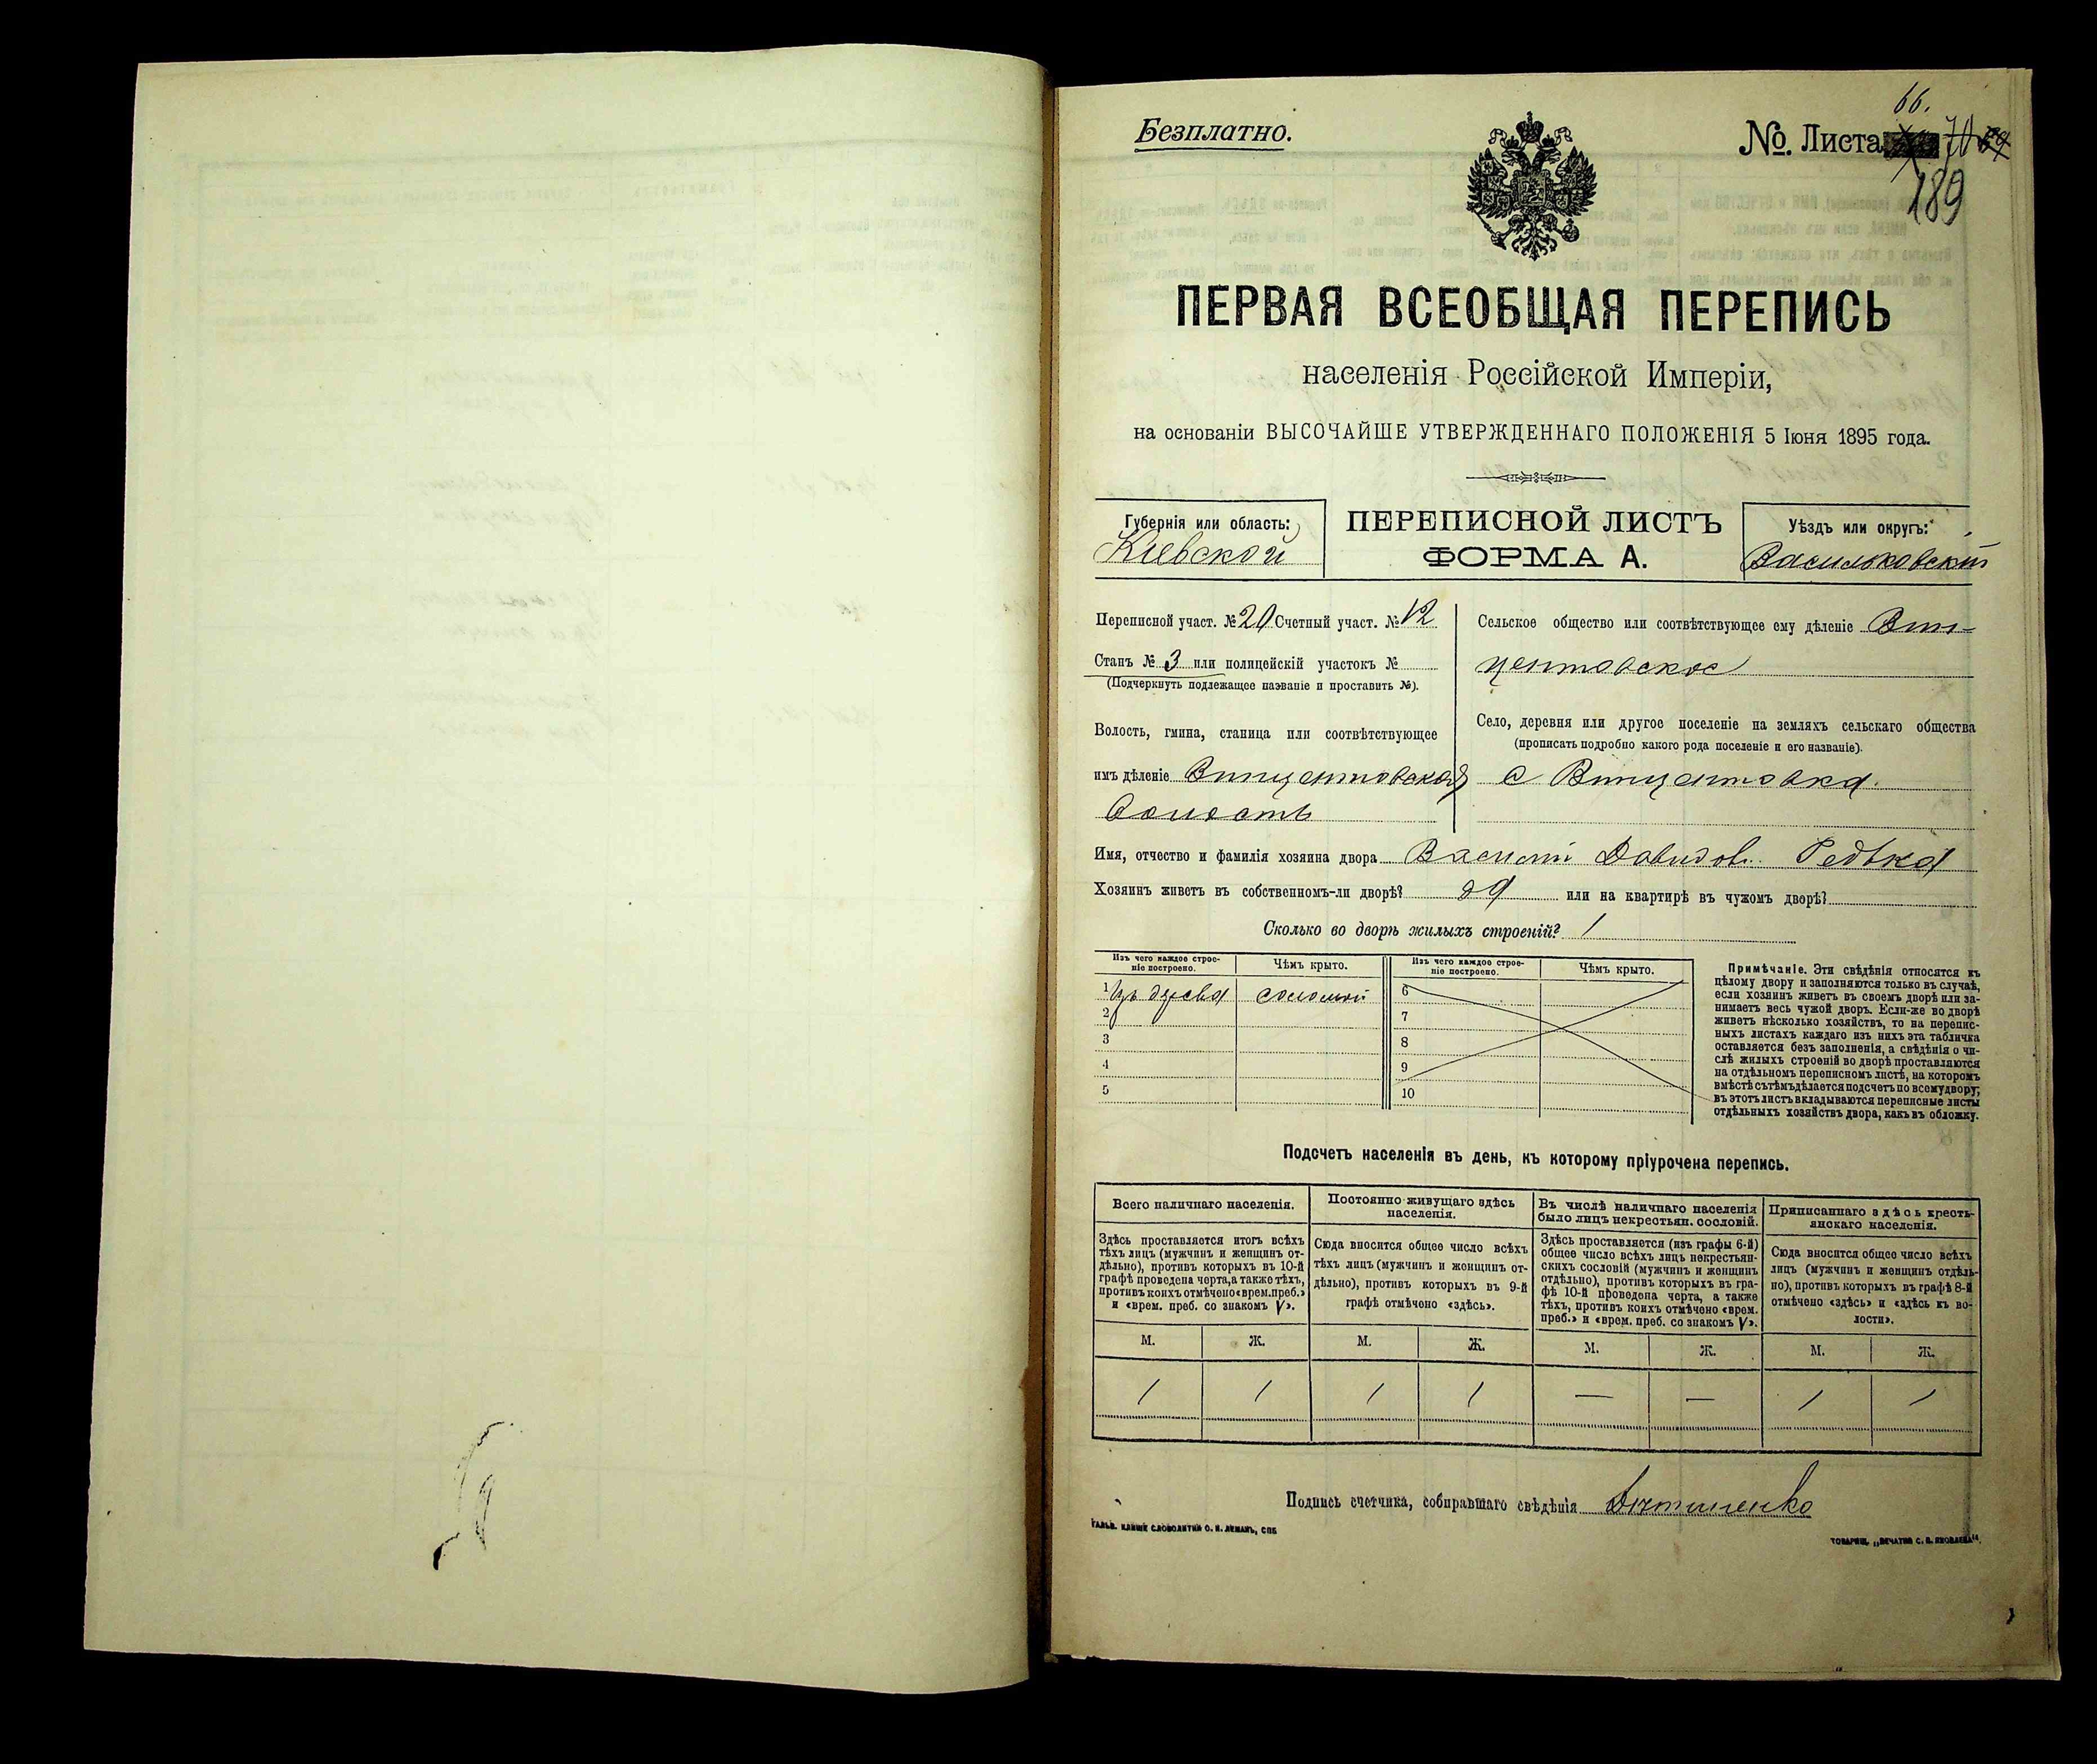 66.
Безплатно.
№. Листа 70
189
ПЕРВАЯ ВСЕОБЩАЯ ПЕРЕПИСЬ
населенія Россійской Имперіи,
на основаніи ВЫСОЧАЙШЕ УТВЕРЖДЕННАГО ПОЛОЖЕНІЯ 5 Іюня 1895 года.
Губернія или область:
Кіевской
ПЕРЕПИСНОЙ ЛИСТЪ
ФОРМА А.
Уѣздъ или округъ:
Васильковскій
Переписной участ. № 20 Счетный участ. № 12
Станъ № 3 или полицейскій участокъ №
(Подчеркнуть подлежащее названіе и проставить №).
Волость, гмина, станица или соотвѣтствующее
имъ дѣленіе Винцентовская
волость
Сельское общество или соотвѣтствующее ему дѣленіе Вин-
центовское
Село, деревня или другое поселеніе на земляхъ сельскаго общества
(прописать подробно какого рода поселеніе и его названіе).
с Винцентовка.
Имя, отчество и фамилія хозяина двора Василій Давидов. Редька
Хозяинъ живетъ въ собственномъ-ли дворѣ? да или на квартирѣ въ чужомъ дворѣ?
Сколько во дворѣ жилыхъ строеній? 1
Изъ чего каждое строе-
ніе построено.
Чѣмъ крыто.
1 изъ дерева соломой
2
3
4
5
Изъ чего каждое строе-
ніе построено.
Чѣмъ крыто.
6
7
8
9
10
Примѣчаніе. Эти свѣдѣнія относятся къ
цѣлому двору и заполняются только въ случаѣ,
если хозяинъ живетъ въ своемъ дворѣ или за-
нимаетъ весь чужой дворъ. Если-же во дворѣ
живетъ нѣсколько хозяйствъ, то на перепис-
ныхъ листахъ каждаго изъ нихъ эта табличка
оставляется безъ заполненія, а свѣдѣнія о чи-
слѣ жилыхъ строеній во дворѣ проставляются
на отдѣльномъ переписномъ листѣ, на которомъ
вмѣстѣ съ тѣмъ дѣлается подсчетъ по всему двору;
въ этотъ листъ вкладываются переписные листы
отдѣльныхъ хозяйствъ двора, какъ въ обложку.
Подсчетъ населенія въ день, къ которому пріурочена перепись.
Всего наличнаго населенія.
Здѣсь проставляется итогъ всѣхъ
тѣхъ лицъ (мужчинъ и женщинъ от-
дѣльно), противъ которыхъ въ 10-й
графѣ проведена черта, а также тѣхъ,
противъ коихъ отмѣчено «врем. преб.»
и «врем. преб. со знакомъ V».
Постоянно живущаго здѣсь
населенія.
Сюда вносится общее число всѣхъ
тѣхъ лицъ (мужчинъ и женщинъ от-
дѣльно), противъ которыхъ въ 9-й
графѣ отмѣчено «здѣсь».
Въ числѣ наличнаго населенія
было лицъ некрестьян. сословій.
Здѣсь проставляется (изъ графы 6-й)
общее число всѣхъ лицъ некрестьян-
скихъ сословій (мужчинъ и женщинъ
отдѣльно), противъ которыхъ въ гра-
фѣ 10-й проведена черта, а также
тѣхъ, противъ коихъ отмѣчено «врем.
преб.» и «врем. преб. со знакомъ V».
Приписаннаго здѣсь кресть-
янскаго населенія.
Сюда вносится общее число всѣхъ
лицъ (мужчинъ и женщинъ отдѣль-
но), противъ которыхъ въ графѣ 8-й
отмѣчено «здѣсь» и «здѣсь къ во-
лости».
М. Ж. М. Ж. М. Ж. М. Ж.
1 1 1 1 — — 1 1
Подпись счетчика, собиравшаго свѣдѣнія
ГАЛЬВ. КЛИШЕ СЛОВОЛИТНИ О. И. ЛЕМАНЪ, СПБ
ТОВАРИЩ. „ПЕЧАТНЯ С. П. ЯКОВЛЕВА“.